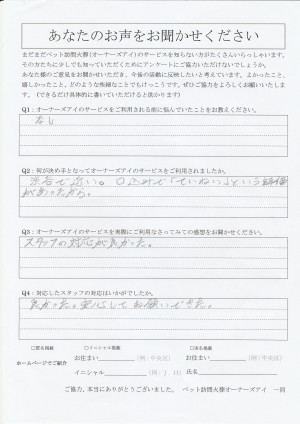 あなたのお声をお聞かせください
まだまだペット訪問火葬(オーナーズアイ)のサービスを知らない方がたくさんいらっしゃいます。
その方たちに少しでも知っていただくためにアンケートにご協力いただけないでしょうか。
あなた様のご意見をお聞かせいただき、今後の活動に反映したいと考えています。よかったこと、
嬉しかったこと、どのような些細なことでもけっこうです。ぜひご協力をよろしくお願いいたします。
(できるだけ具体的に書いていただけると助かります)
Q1:オーナーズアイのサービスをご利用される前に悩んでいたことをお教えください。
なし
Q2:何が決め手となってオーナーズアイのサービスをご利用されましたか。
で近い。口込みで「ていねい」という評価
があったから。
Q3:オーナーズアイのサービスを実際にご利用なさってみての感想をお聞かせください。
スタッフの対応が良かった。
Q4:対応したスタッフの対応はいかがでしたか。
良かった。安心してお願いできた。
□匿名掲載 □イニシャル掲載 □実名掲載
お住まい (例:中央区) お住まい (例:中央区)
ホームページでご紹介
イニシャル (例:J. H) 氏名
ご協力、本当にありがとうございました。 ペット訪問火葬オーナーズアイ 一同